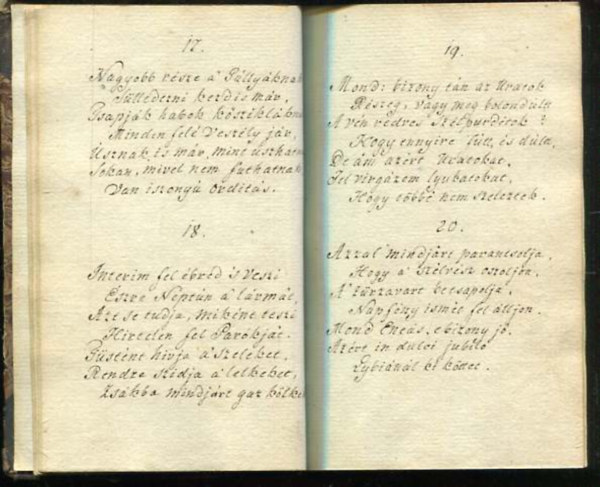 17.
Nagyobb része a' Gállyáknak
Süllyedezni kezdie már,
Csapják habok kősziklákna
Minden felé Veszély jár,
Úsznak is már, mint úszhatna
Sokan, mivel nem futhatnak
Van iszonyú orditás.
18.
Interim fel ébréd 's Veszi
Eszre Neptún a' lármát,
Azt se tudja, miként teszi
Hirtelen fel Parókját.
Füstént hivja a' szeleket,
Rendre szidja a' lelkeket,
Zsákba mindjárt gaz kölke
19.
Mond: bizony tán az Uracok
Részeg, vagy meg bolondúlt
A vén vedres
Hogy ennyire fútt, és dúlt,
De ám azért Uratokat,
Fel virgázem lyukatokat,
Hogy többé nem szeleztek.
20.
Azzal mindjárt parantsolja,
Hogy a' szélvész oszoljon.
A' zűrzavart betsapolja,
Napfény ismét fel álljon.
Mond Eneás, ebizony jó
Azért in dulci jubilo
Lybiánál ki köttet.